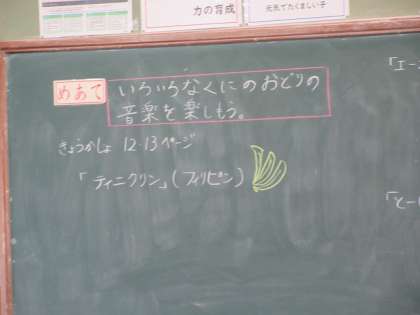 力の育成
元気でたくましい子
めあて
いろいろなくにのおどりの
音楽を楽しもう。
きょうかしょ 12・13ページ
「ティニクリン」(フィリピン)